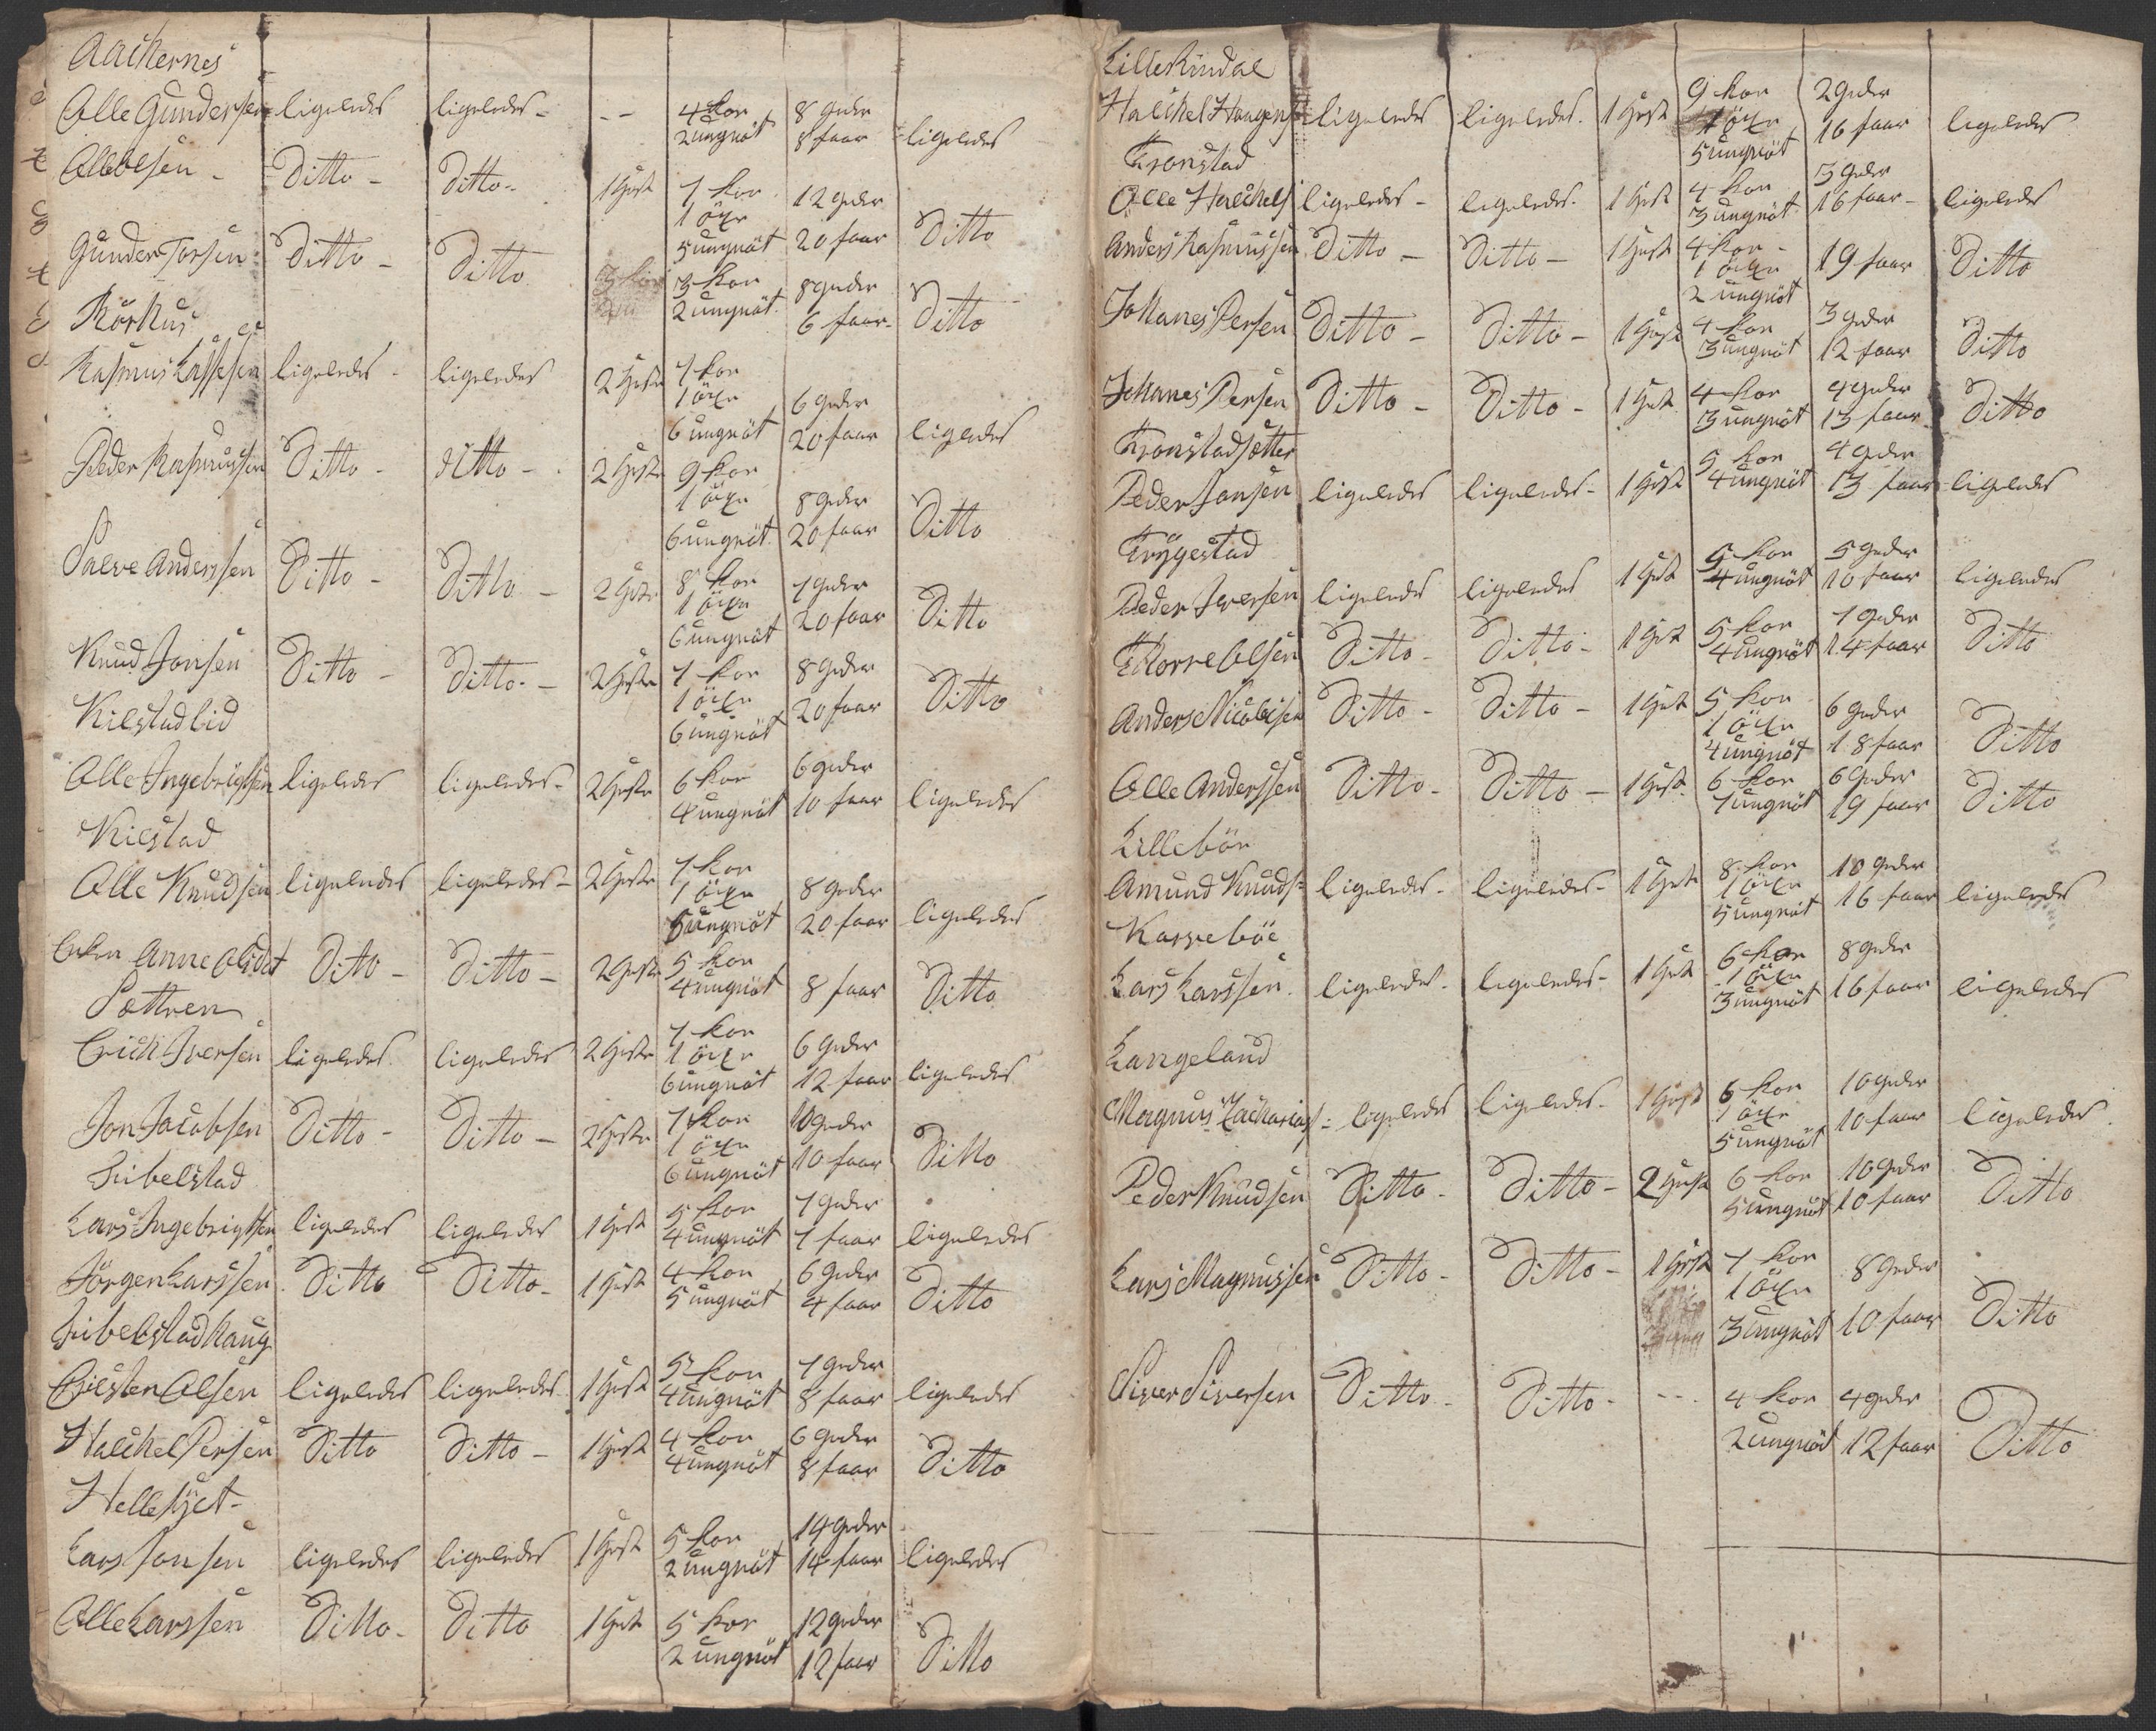 Aakernes
Olle Gundersen ligeledes ligeledes - -- 4 kor 8 geder ligeledes
2 ungnöt 8 faar
Olle Olsen - Ditto - Ditto - 1 Hest 7 kor 12 geder Ditto
1 öxe
5 ungnöt 20 faar
Gunder Torsen Ditto - Ditto 3 kor 8 geder Ditto
2 ungnöt 6 faar
Röshus
Rasmus Lassesen ligeledes - ligeledes 2 Heste 7 kor 6 geder ligeledes
1 öxe
6 ungnöt 20 faar
Peder Rasmussen Ditto - ditto - 2 Heste 9 kor 8 geder Ditto
1 öxe
6 ungnöt 20 faar
Salve Anderssen Ditto - Ditto - 2 Heste 8 kor 7 geder Ditto
1 öxe
6 ungnöt 20 faar
Knud Jonsen Ditto - Ditto - 2 Heste 7 kor 8 geder Ditto
1 öxe
6 ungnöt 20 faar
Kilstadlid
Olle Ingebrigtsen ligeledes ligeledes - 2 Heste 6 kor 6 geder ligeledes
4 ungnöt 10 faar
Kilstad
Olle Knudsen ligeledes ligeledes - 2 Heste 7 kor 8 geder ligeledes
1 öxe
5 ungnöt 20 faar
Enken Anne Olsdat Ditto - Ditto - 2 Heste 5 kor Ditto
4 ungnöt 8 faar
Sættren
Erich Iversen ligeledes ligeledes 2 Heste 7 kor 6 geder ligeledes
1 öxe
6 ungnöt 12 faar
Jon Jacobsen Ditto - Ditto - 2 Heste 7 kor 10 geder Ditto
1 öxe
6 ungnöt 10 faar
Sibelstad
Lars Ingebrigtsen ligeledes ligeledes 1 Hest 5 kor 7 geder ligeledes
4 ungnöt 7 faar
Jörgen Larssen Ditto Ditto - 1 Hest 4 kor 6 geder Ditto
5 ungnöt 4 faar
Sibelstadhaug
Kiersten Olsen ligeledes ligeledes 1 Hest 5 kor 7 geder ligeledes
4 ungnöt 8 faar
Halchel Persen Ditto Ditto - 1 Hest 4 kor 6 geder Ditto
4 ungnöt 8 faar
Hellesÿet -
Lars Jonsen ligeledes ligeledes 1 Hest 5 kor 14 geder ligeledes
2 ungnöt 14 faar
Olle Larssen Ditto - Ditto 1 Hest 5 kor 12 geder Ditto
2 ungnöt 12 faar
Lille Rindal
Halchel Haagens ligeledes ligeledes - 1 Hest 9 kor 2 geder ligeledes
1 öxe
5 ungnöt 16 faar
Tronstad
Olle Halchels ligeledes - ligeledes - 1 Hest 4 kor 3 geder ligeledes
3 ungnöt 16 faar -
Anders Rasmussen Ditto - Ditto - 1 Hest 4 kor - 19 faar Ditto
1 öxe
2 ungnöt
Johanes Persen Ditto - Ditto - 1 Hest 4 kor 3 geder Ditto
3 ungnöt 12 faar
Johanes Persen Ditto - Ditto - 1 Hest 4 kor 4 geder Ditto
3 ungnöt 13 faar
Tronstadsætter
Peder Jonsen ligeledes ligeledes - 1 Hest 5 kor 4 geder ligeledes
4 ungnöt 13 faar
Trÿgestad
Peder Iversen ligeledes ligeledes 1 Hest 5 kor 5 geder ligeledes
4 ungnöt 10 faar
Thorre Olsen Ditto - Ditto - 1 Hest 5 kor 7 geder Ditto
4 ungnöt 14 faar
Anders Nicolaisen Ditto - Ditto - 1 Hest 5 kor 6 geder Ditto
1 öxe
4 ungnöt 18 faar
Olle Anderssen Ditto - Ditto - 1 Hest 6 kor 6 geder Ditto
7 ungnöt 19 faar
Lillebön
Amund Knuds: ligeledes - ligeledes - 1 Hest 8 kor 10 geder ligeledes
1 öxe
5 ungnöt 16 faar
Korseböe
Lars Larssen ligeledes - ligeledes - 1 Hest 6 kor 8 geder ligeledes
1 öxe
3 ungnöt 16 faar
Langeland
Magnus Zacharias: ligeledes ligeledes - 1 Hest 6 kor 10 geder ligeledes
1 öxe
5 ungnöt 10 faar
Peder Knudsen Ditto - Ditto - 2 Hest 6 kor 10 geder Ditto
5 ungnöt 10 faar
Lars Magnussen Ditto - Ditto - 1 Hest 7 kor 8 geder Ditto
1 öxe
3 ungnöt 10 faar
Siver Siversen Ditto - Ditto - -- 4 kor 4 geder Ditto
2 ungnöd 12 faar